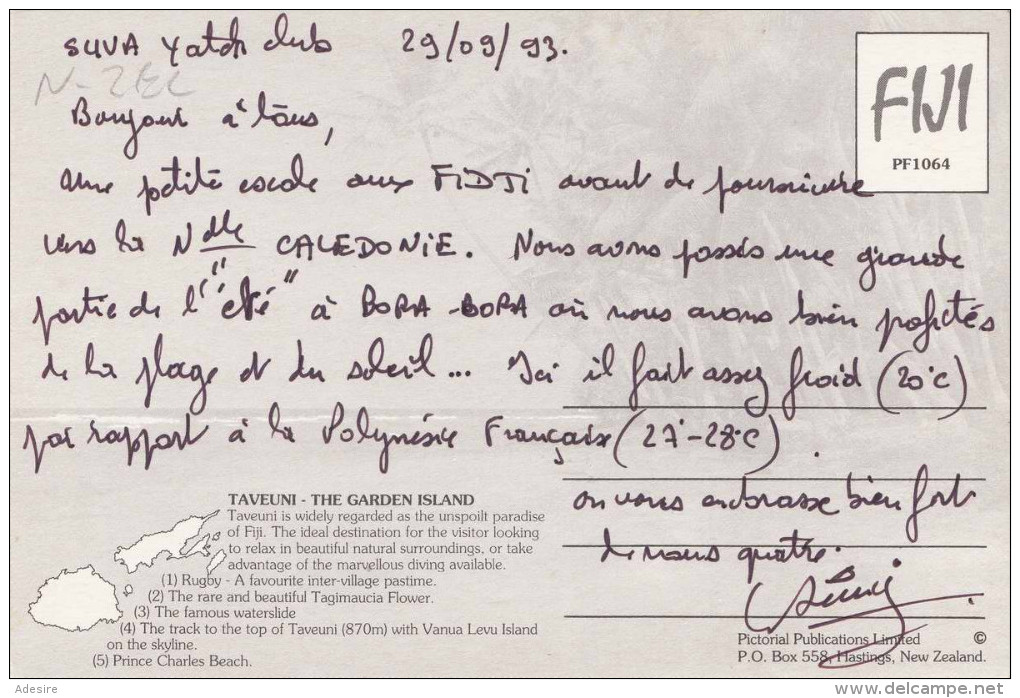 SUVA Yatch club 29/09/93.
N-ZEL
FIJI
PF1064
Bonjour à tous,
une petite escale aux FIDJI avant de poursuivre
vers la Nelle CALEDONIE. Nous avons passés une grande
partie de l'"été" à BORA-BORA où nous avons bien profités
de la plage et du soleil... Ici il fait assez froid (20°C)
par rapport à la Polynésie Française (27°-28°C).
on vous embrasse bien fort
de nous quatre.
TAVEUNI - THE GARDEN ISLAND
Taveuni is widely regarded as the unspoilt paradise
of Fiji. The ideal destination for the visitor looking
to relax in beautiful natural surroundings, or take
advantage of the marvellous diving available.
(1) Rugby - A favourite inter-village pastime.
(2) The rare and beautiful Tagimaucia Flower.
(3) The famous waterslide
(4) The track to the top of Taveuni (870m) with Vanua Levu Island
on the skyline.
(5) Prince Charles Beach.
Pictorial Publications Limited ©
P.O. Box 558, Hastings, New Zealand.
Adesire
www.delcampe.net